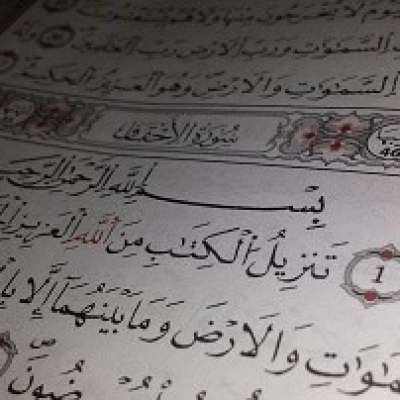 يَوْمَ لَا يُخْرَجُونَ مِنْهَا وَلَا هُمْ يُسْتَعْتَبُونَ
السَّمٰوَاتِ وَرَبِّ الْاَرْضِ رَبِّ الْعَالَمِينَ
السَّمٰوَاتِ وَالْاَرْضِ وَهُوَ الْعَزِيزُ الْحَكِيمُ
سُورَةُ الْاَحْقَافِ
46
بِسْمِ اللّٰهِ الرَّحْمٰنِ الرَّحِيمِ
1 تَنْزِيلُ الْكِتَابِ مِنَ اللّٰهِ الْعَزِيزِ
مٰوَاتِ وَالْاَرْضَ وَمَا بَيْنَهُمَٓا اِلَّا
ضُونَ